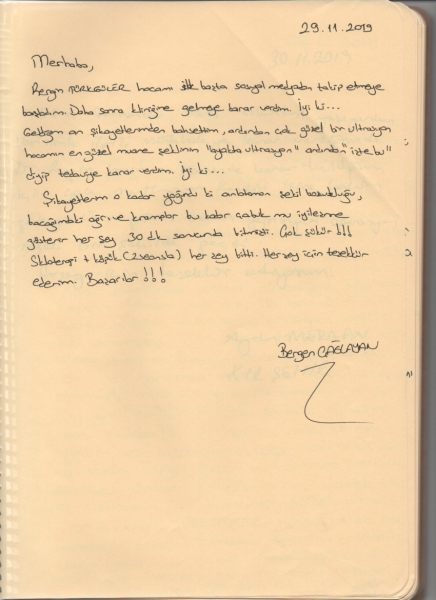 29.11.2019
Merhaba,
Rengin TÜRKGÜLER hocamı ilk başta sosyal medyadan takip etmeye
başladım. Daha sonra kliniğine gelmeye karar verdim. İyi ki...
Geldiğim an şikayetlerimden bahsettim, ardından çok güzel bir ultrasyon
hocamın en güzel muane şeklinin "ayakta ultrasyon" ardından "işte bu"
diyip tedaviye karar verdim. İyi ki...
Şikayetlerim o kadar yoğundu ki anlatamam şekil bozukluğu,
bacağımdaki ağrı ve kramplar bu kadar çabuk mu iyileşme
gösterir her şey 30 dk sonrasında bitmişti. Çok şükür !!!
Skleterapi + köpük (2 seansla) her şey bitti. Her şey için teşekkür
ederim. Başarılar !!!
Bergen ÇAĞLAYAN